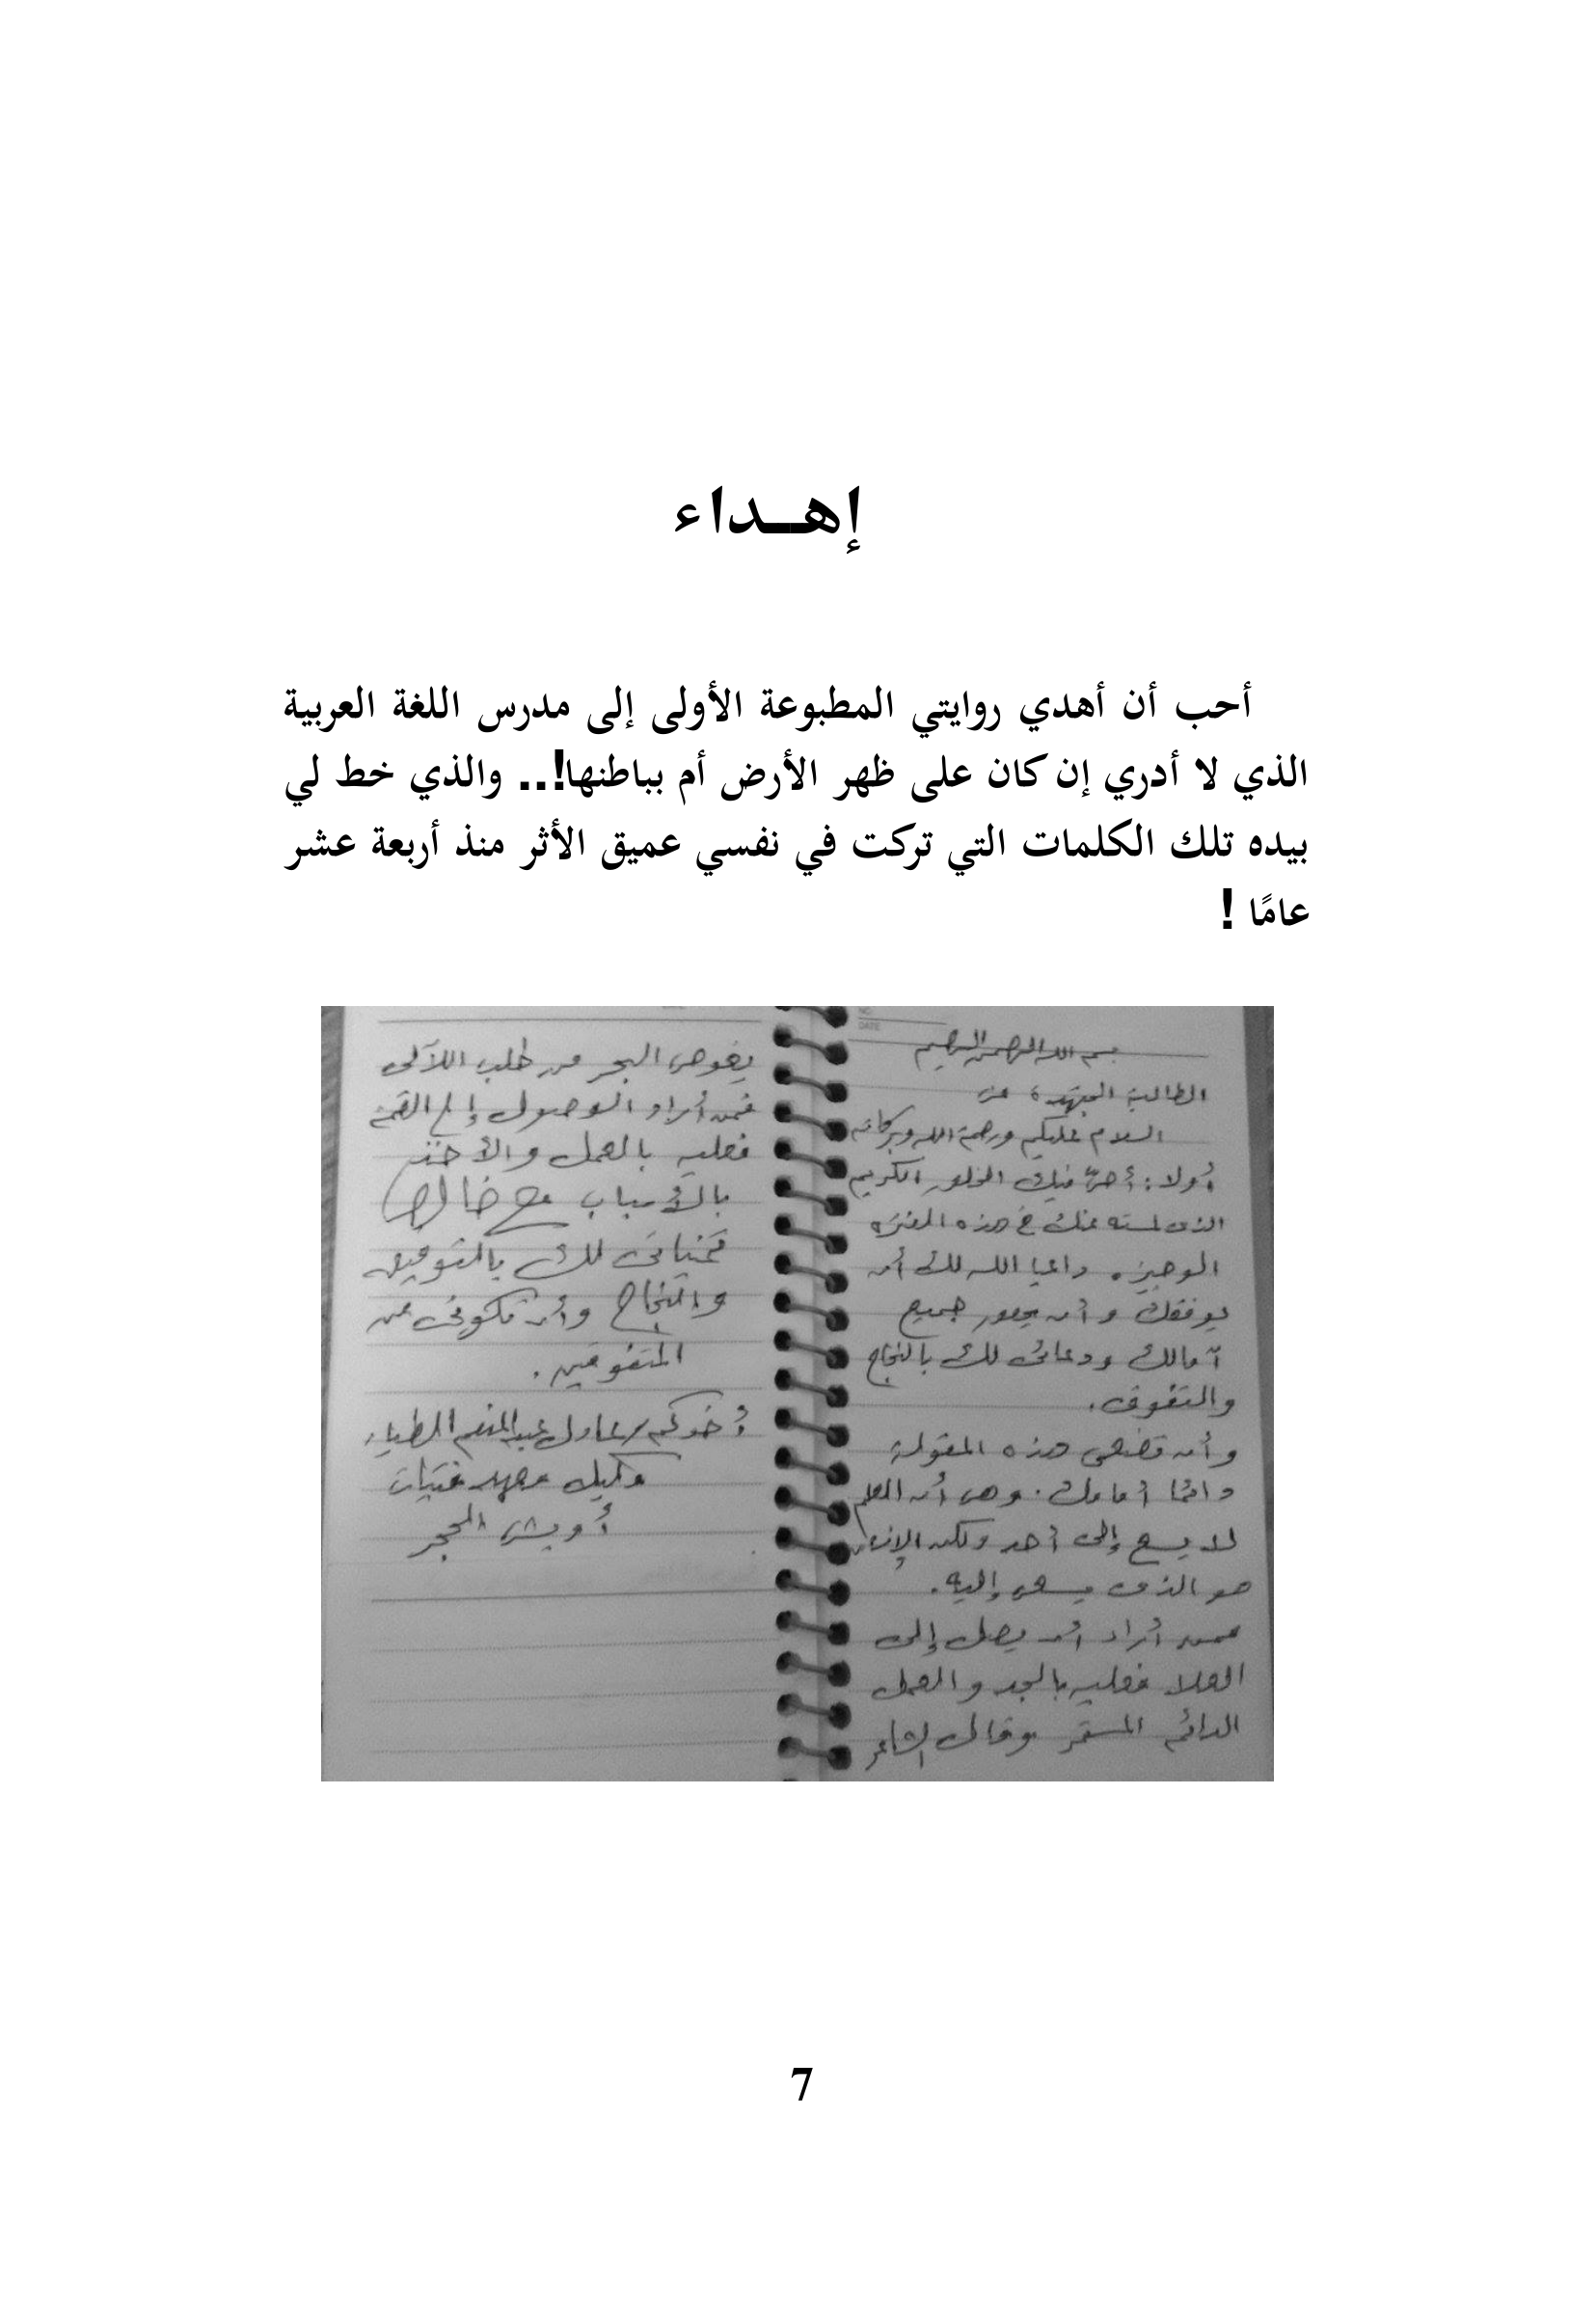 إهـــداء
أحب أن أهدي روايتي المطبوعة الأولى إلى مدرس اللغة العربية
الذي لا أدري إن كان على ظهر الأرض أم بباطنها!.. والذي خط لي
بيده تلك الكلمات التي تركت في نفسي عميق الأثر منذ أربعة عشر
عامًا !
NO.
DATE
بسم الله الرحمن الرحيم
الطالبة المجتهدة
السلام عليكم ورحمة الله وبركاته
أولا : فيك الخلق الكريم
الذى لمسته منك فى هذه الفترة
الوجيزة. داعيا الله لك أن
يوفقك وأن يحقق جميع
آمالك ودعائى لك بالنجاح
والتفوق.
وأن تضعى هذه المقولة
دائما أمامك. وهى أن العلم
لا يسعى إلى أحد ولكن الإنسان
هو الذى يسعى إليه.
فمن أراد أن يصل إلى
العلا فعليه بالجد والعمل
الدائم المستمر وقال الشاعر
يغوص البحر من طلب اللآلى
فمن أراد الوصول إلى القمة
فعليه بالعمل والأخذ
بالأسباب مع خالص
تمنياتى لك بالتوفيق
والنجاح وأن تكونى من
المتفوقين.
أخوكم / عادل عبدالمنعم الطيار
وكيل معهد فتيات
أويش الحجر
7